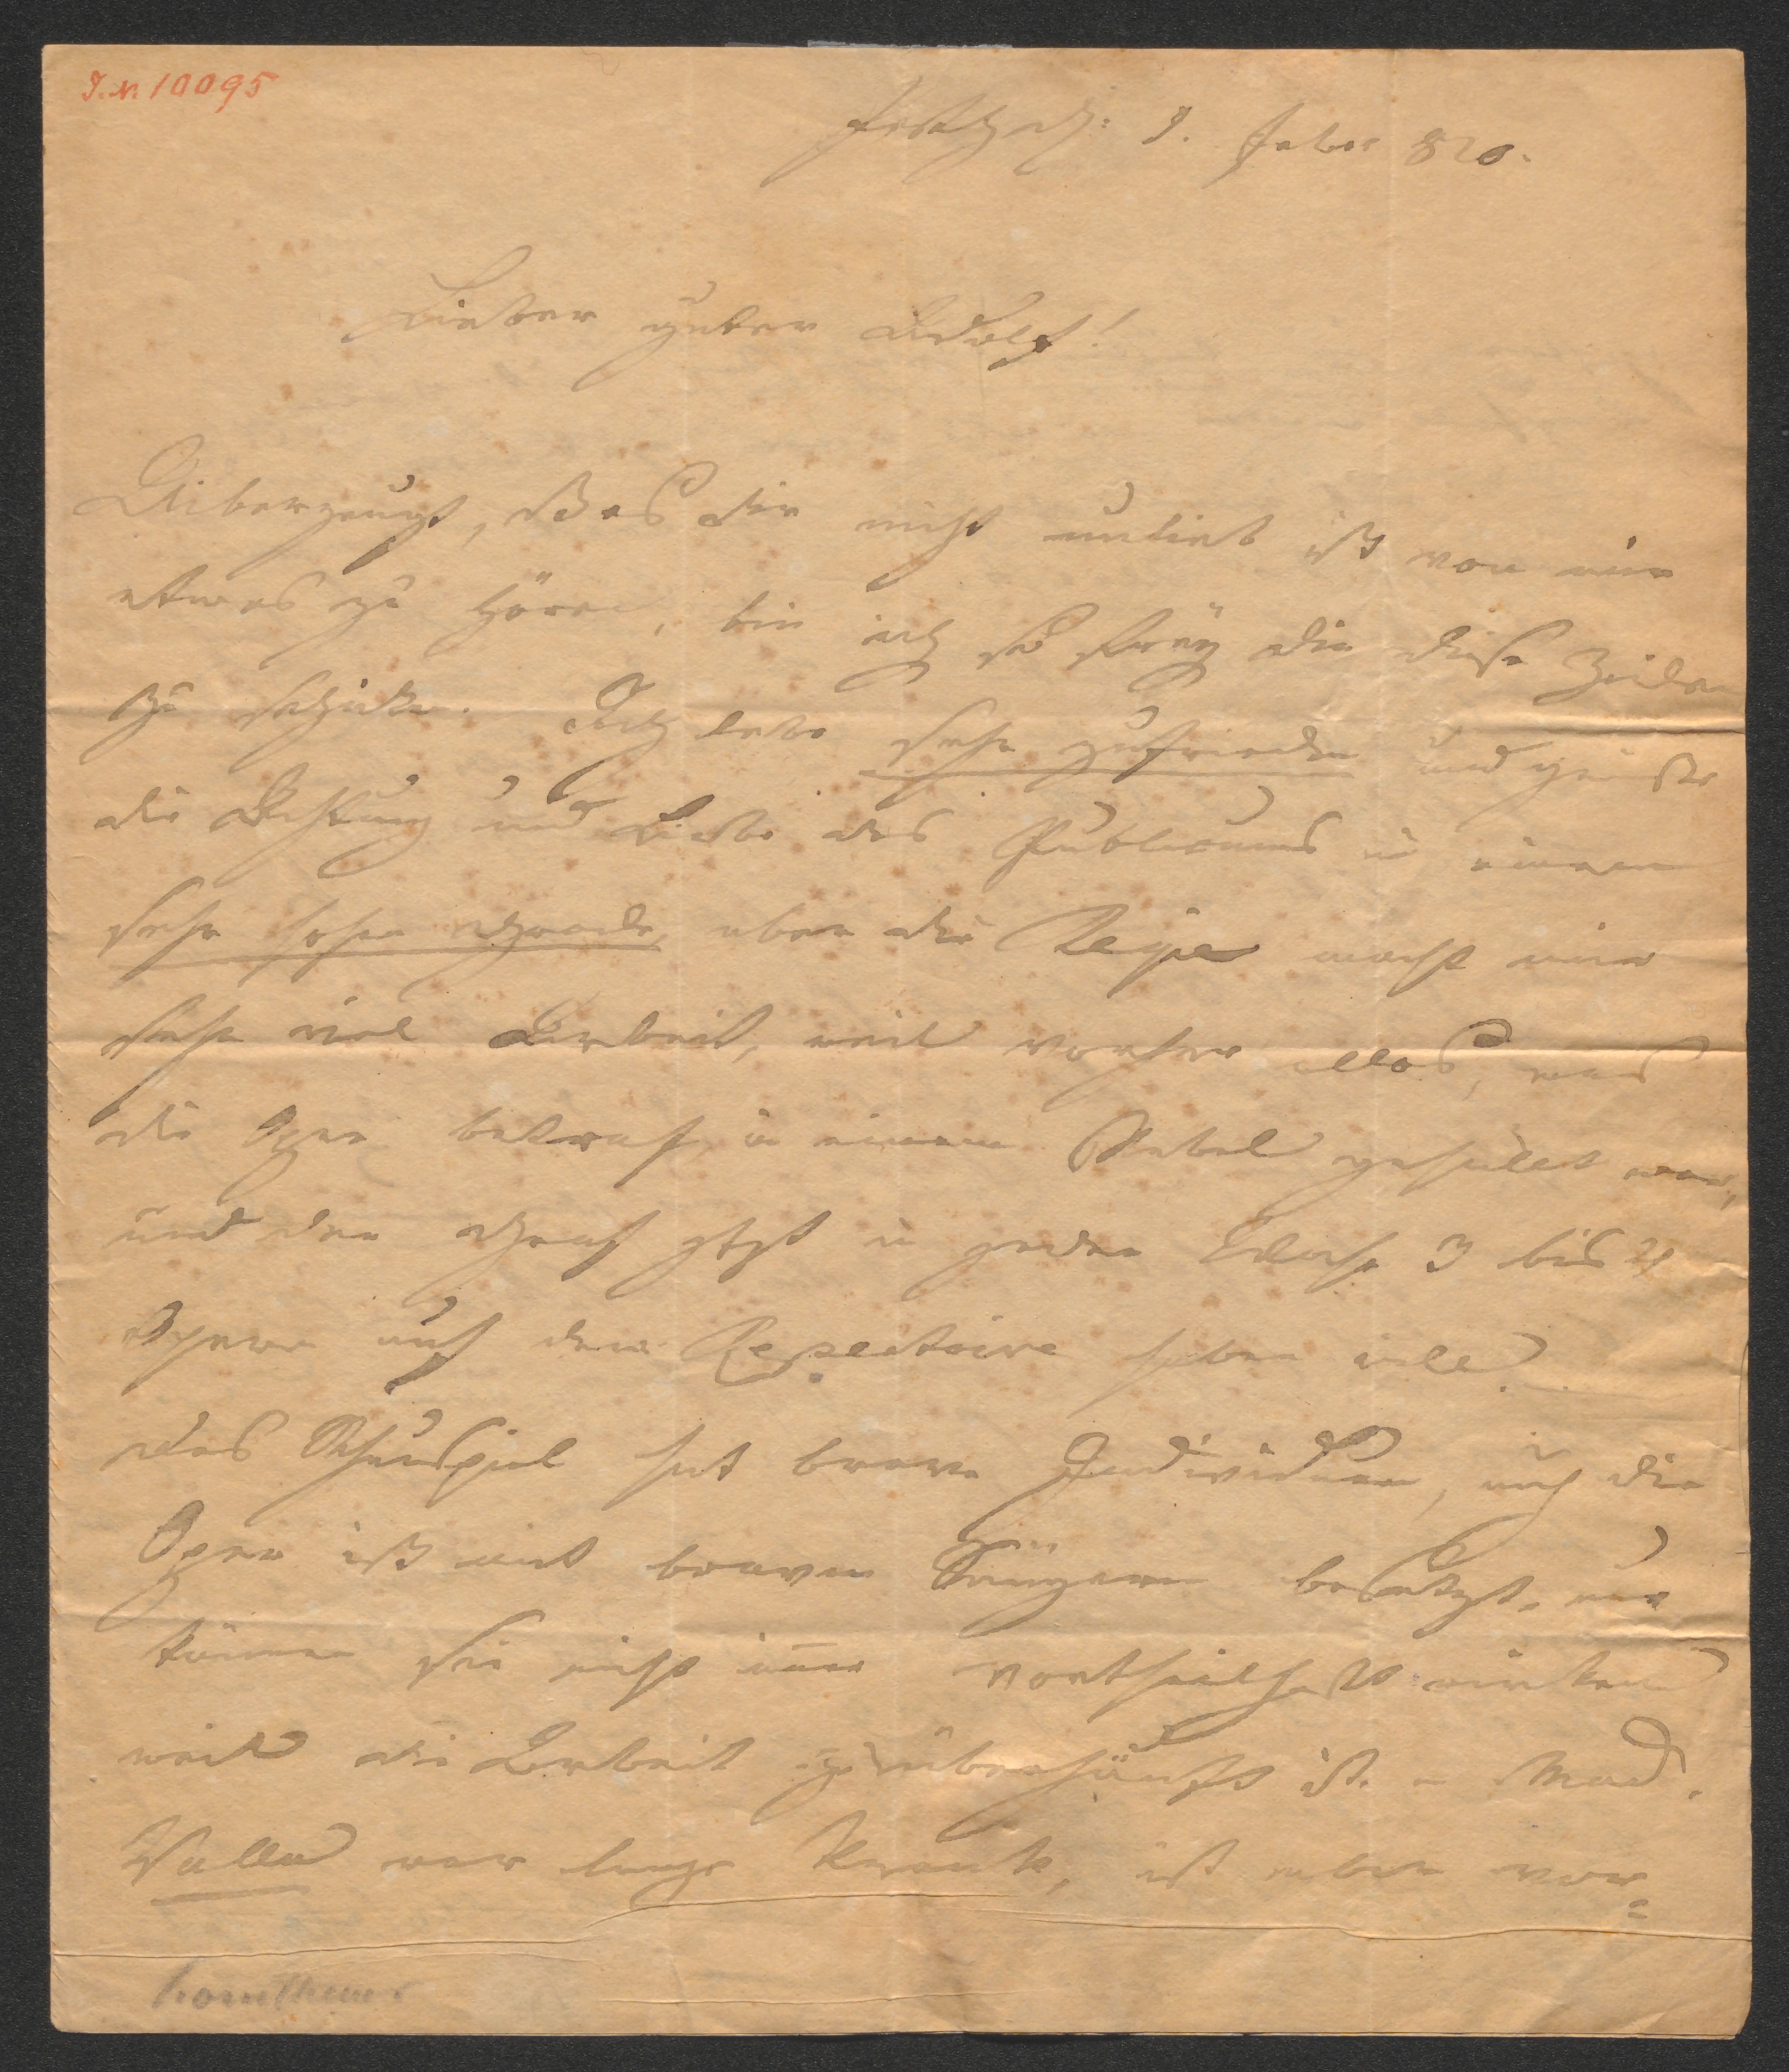 I.N. 10095
9. Feber 820.
Lieber guter Adolf!
Uiberzeugt, daß es dir nicht unlieb ist von mir
etwas zu hören, bin ich so frey dir diese Zeilen
zu schicken. Ich lebe sehr zufrieden und genieße
die Achtung und Liebe des Publicums in einem
sehr hohen Grade, aber die Regie macht mir
sehr viel Arbeit, weil vorher alles, was
die Oper betraf in einem Nebel gehüllt war,
und der Graf jetzt in jeder Woche 3 bis 4
Opern auf dem Repertoire haben will.
das Schauspiel hat brave Individuen, auch die
Oper ist mit braven Sängern besetzt, nur
können sie nicht immer vortheilhaft wirken
weil die Arbeit zu überhäuft ist. – Mad.
Valla war lange krank, ist aber vor=
Korntheuer